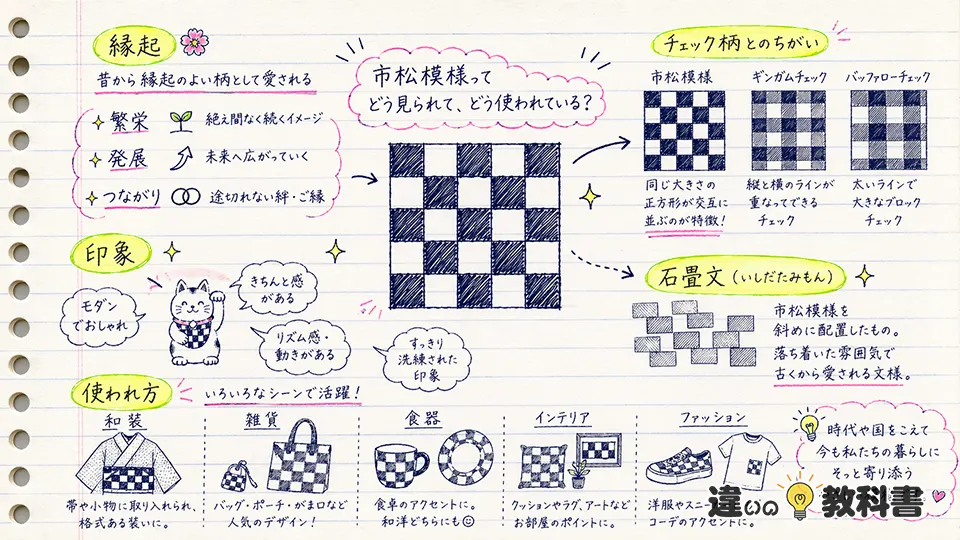 市松模様って
どう見られて、どう使われている?
縁起
昔から縁起のよい柄として愛される
繁栄 絶え間なく続くイメージ
発展 未来へ広がっていく
つながり 途切れない絆・ご縁
チェック柄とのちがい
市松模様
同じ大きさの
正方形が交互に
並ぶのが特徴!
ギンガムチェック
縦と横のラインが
重なってできる
チェック
バッファローチェック
太いラインで
大きなブロック
チェック
印象
モダン
でおしゃれ
きちんと感
がある
リズム感・
動きがある
すっきり
洗練された
印象
石畳文(いしだたみもん)
市松模様を
斜めに配置したもの。
落ち着いた雰囲気で
古くから愛される文様。
使われ方
いろいろなシーンで活躍!
和装
帯や小物に取り入れられ、
格式ある装いに。
雑貨
バッグ・ポーチ・がま口など
人気のデザイン!
食器
食卓のアクセントに。
和洋どちらにも
インテリア
クッションやラグ、アートなど
お部屋のポイントに。
ファッション
洋服やスニ
コーデのアクセントに。
時代や国をこえて
今も私たちの暮らしに
そっと寄り添う
違いの教科書